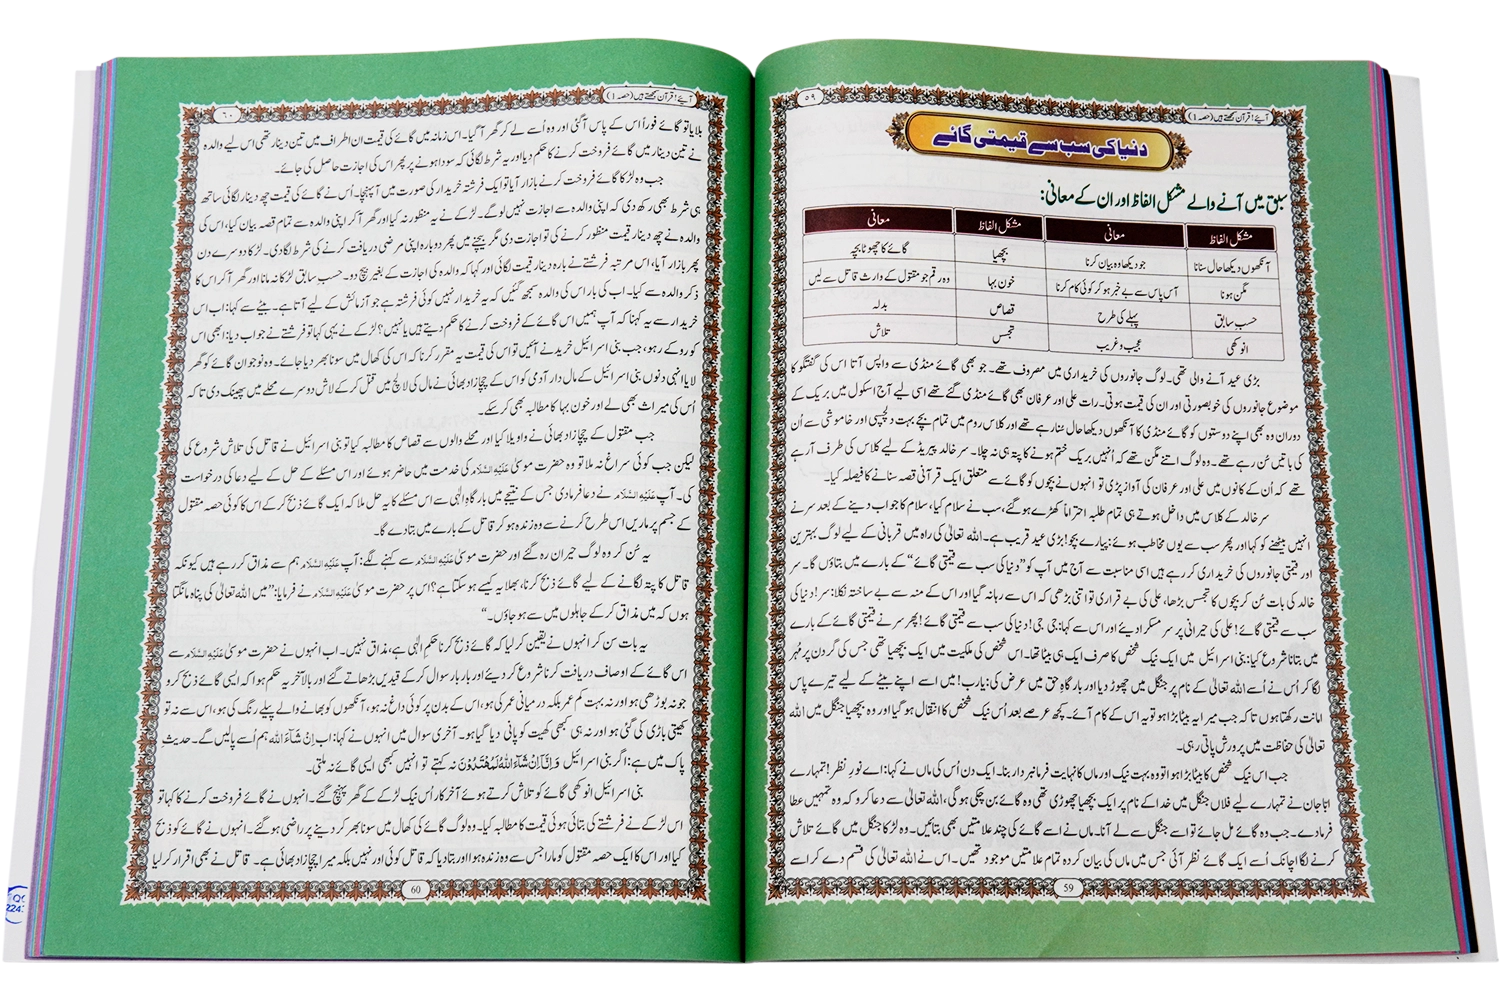 آیئے! قرآن سمجھتے ہیں (حصہ ۱)
۵۹
دنیا کی سب سے قیمتی گائے
سبق میں آنے والے مشکل الفاظ اور ان کے معانی:
مشکل الفاظ معانی مشکل الفاظ معانی
آنکھوں دیکھا حال سنانا جو دیکھا وہ بیان کرنا بچھیا گائے کا چھوٹا بچہ
مگن ہونا آس پاس سے بے خبر ہو کر کوئی کام کرنا خون بہا وہ رقم جو مقتول کے وارث قاتل سے لیں
حسبِ سابق پہلے کی طرح قصاص بدلہ
انوکھی عجیب و غریب تجسس تلاش
بڑی عید آنے والی تھی۔ لوگ جانوروں کی خریداری میں مصروف تھے۔ جو بھی گائے منڈی سے واپس آتا اس کی گفتگو کا
موضوع جانوروں کی خوبصورتی اور ان کی قیمت ہوتی۔ رات علی اور عرفان بھی گائے منڈی گئے تھے اسی لیے آج اسکول میں بریک کے
دوران وہ بھی اپنے دوستوں کو گائے منڈی کا آنکھوں دیکھا حال سنا رہے تھے اور کلاس روم میں تمام بچے بہت دلچسپی اور خاموشی سے اُن
کی باتیں سُن رہے تھے۔ وہ لوگ اتنے مگن تھے کہ اُنہیں بریک ختم ہونے کا پتہ ہی نہ چلا۔ سر خالد پیریڈ کے لیے کلاس کی طرف آ رہے
تھے کہ اُن کے کانوں میں علی اور عرفان کی آواز پڑی تو انہوں نے بچوں کو گائے سے متعلق ایک قرآنی قصہ سنانے کا فیصلہ کیا۔
سر خالد کے کلاس میں داخل ہوتے ہی تمام طلبہ احتراماً کھڑے ہو گئے، سب نے سلام کیا، سلام کا جواب دینے کے بعد سر نے
انہیں بیٹھنے کو کہا اور پھر سب سے یوں مخاطب ہوئے: پیارے بچو! بڑی عید قریب ہے۔ اللہ تعالیٰ کی راہ میں قربانی کے لیے لوگ بہترین
اور قیمتی جانوروں کی خریداری کر رہے ہیں اسی مناسبت سے آج میں آپ کو ”دنیا کی سب سے قیمتی گائے“ کے بارے میں بتاؤں گا۔ سر
خالد کی بات سُن کر بچوں کا تجسس بڑھا، علی کی بے قراری تو اتنی بڑھی کہ اس سے رہا نہ گیا اور اس کے منہ سے بے ساختہ نکلا: سر! دنیا کی
سب سے قیمتی گائے! علی کی حیرانی پر سر مسکرا دیئے اور اس سے کہا: جی جی! دنیا کی سب سے قیمتی گائے! پھر سر نے قیمتی گائے کے بارے
میں بتانا شروع کیا: بنی اسرائیل میں ایک نیک شخص کا صرف ایک ہی بیٹا تھا۔ اس شخص کی ملکیت میں ایک بچھیا تھی جس کی گردن پر مُہر
لگا کر اُس نے اُسے اللہ تعالیٰ کے نام پر جنگل میں چھوڑ دیا اور بارگاہِ حق میں عرض کی: یارب! میں اسے اپنے بیٹے کے لیے تیرے پاس
امانت رکھتا ہوں تاکہ جب میرا یہ بیٹا بڑا ہو تو یہ اس کے کام آئے۔ کچھ عرصے بعد اُس نیک شخص کا انتقال ہو گیا اور وہ بچھیا جنگل میں اللہ
تعالیٰ کی حفاظت میں پرورش پاتی رہی۔
جب اس نیک شخص کا بیٹا بڑا ہوا تو وہ بہت نیک اور ماں کا نہایت فرمانبردار بنا۔ ایک دن اُس کی ماں نے کہا: اے نورِ نظر! تمہارے
ابا جان نے تمہارے لیے فلاں جنگل میں خدا کے نام پر ایک بچھیا چھوڑی تھی وہ گائے بن چکی ہوگی، اللہ تعالیٰ سے دعا کرو کہ وہ تمہیں عطا
فرما دے۔ جب وہ گائے مل جائے تو اسے جنگل سے لے آنا۔ ماں نے اسے گائے کی چند علامتیں بھی بتائیں۔ وہ لڑکا جنگل میں گائے تلاش
کرنے لگا اچانک اُسے ایک گائے نظر آئی جس میں ماں کی بیان کردہ تمام علامتیں موجود تھیں۔ اس نے اللہ تعالیٰ کی قسم دے کر اسے
59
آیئے! قرآن سمجھتے ہیں (حصہ ۱)
۶۰
بلایا تو گائے فوراً اس کے پاس آگئی اور وہ اُسے لے کر گھر آگیا۔ اس زمانہ میں گائے کی قیمت ان اطراف میں تین دینار تھی اس لیے والدہ
نے تین دینار میں گائے فروخت کرنے کا حکم دیا اور یہ شرط لگائی کہ سودا ہونے پر پھر اس کی اجازت حاصل کی جائے۔
جب وہ لڑکا گائے فروخت کرنے بازار آیا تو ایک فرشتہ خریدار کی صورت میں آ پہنچا۔ اُس نے گائے کی قیمت چھ دینار لگائی ساتھ
ہی شرط بھی رکھ دی کہ اپنی والدہ سے اجازت نہیں لو گے۔ لڑکے نے یہ منظور نہ کیا اور گھر آ کر اپنی والدہ سے تمام قصہ بیان کیا، اس کی
والدہ نے چھ دینار قیمت منظور کرنے کی تو اجازت دی مگر بیچنے میں پھر دوبارہ اپنی مرضی دریافت کرنے کی شرط لگا دی۔ لڑکا دوسرے دن
پھر بازار آیا، اس مرتبہ فرشتے نے بارہ دینار قیمت لگائی اور کہا کہ والدہ کی اجازت کے بغیر بیچ دو۔ حسبِ سابق لڑکا نہ مانا اور گھر آ کر اس کا
ذکر والدہ سے کیا۔ اب کی بار اس کی والدہ سمجھ گئیں کہ یہ خریدار نہیں کوئی فرشتہ ہے جو آزمائش کے لیے آتا ہے۔ بیٹے سے کہا: اب اس
خریدار سے یہ کہنا کہ آپ ہمیں اس گائے کے فروخت کرنے کا حکم دیتے ہیں یا نہیں؟ لڑکے نے یہی کہا تو فرشتے نے جواب دیا: ابھی اس
کو روکے رہو، جب بنی اسرائیل خریدنے آئیں تو اس کی قیمت یہ مقرر کرنا کہ اس کی کھال میں سونا بھر دیا جائے۔ وہ نوجوان گائے کو گھر
لایا انہی دنوں بنی اسرائیل کے مال دار آدمی کو اس کے چچازاد بھائی نے مال کی لالچ میں قتل کر کے لاش دوسرے محلے میں پھینک دی تاکہ
اُس کی میراث بھی لے اور خون بہا کا مطالبہ بھی کر سکے۔
جب مقتول کے چچازاد بھائی نے واویلا کیا اور محلے والوں سے قصاص کا مطالبہ کیا تو بنی اسرائیل نے قاتل کی تلاش شروع کی
لیکن جب کوئی سراغ نہ ملا تو وہ حضرت موسیٰ عَلَیْهِ السَّلَام کی خدمت میں حاضر ہوئے اور اس مسئلے کے حل کے لیے دعا کی درخواست
کی۔ آپ عَلَیْهِ السَّلَام نے دعا فرمادی جس کے نتیجے میں بارگاہِ الٰہی سے اس مسئلے کا یہ حل ملا کہ ایک گائے ذبح کر کے اس کا کوئی حصہ مقتول
کے جسم پر ماریں اس طرح کرنے سے وہ زندہ ہو کر قاتل کے بارے میں بتا دے گا۔
یہ سُن کر وہ لوگ حیران رہ گئے اور حضرت موسیٰ عَلَیْهِ السَّلَام سے کہنے لگے: آپ عَلَیْهِ السَّلَام ہم سے مذاق کر رہے ہیں کیونکہ
قاتل کا پتہ لگانے کے لیے گائے ذبح کرنا، بھلا یہ کیسے ہو سکتا ہے؟ اس پر حضرت موسیٰ عَلَیْهِ السَّلَام نے فرمایا: ”میں اللہ تعالیٰ کی پناہ مانگتا
ہوں کہ میں مذاق کر کے جاہلوں میں سے ہو جاؤں۔“
یہ بات سن کر انہوں نے یقین کر لیا کہ گائے ذبح کرنا حکمِ الٰہی ہے، مذاق نہیں۔ اب انہوں نے حضرت موسیٰ عَلَیْهِ السَّلَام سے
اس گائے کے اوصاف دریافت کرنا شروع کر دیئے اور بار بار سوال کر کے قیدیں بڑھاتے گئے اور بالآخر یہ حکم ہوا کہ ایسی گائے ذبح کرو
جو نہ بوڑھی ہو اور نہ بہت کم عمر بلکہ درمیانی عمر کی ہو، اس کے بدن پر کوئی داغ نہ ہو، آنکھوں کو بھانے والے پیلے رنگ کی ہو، اس سے نہ تو
کھیتی باڑی کی گئی ہو اور نہ ہی کبھی کھیت کو پانی دیا گیا ہو۔ آخری سوال میں انہوں نے کہا: اب اِنْ شَآءَ اللہ ہم اُسے پالیں گے۔ حدیثِ
پاک میں ہے: اگر بنی اسرائیل وَ اِنَّاۤ اِنْ شَآءَ اللّٰهُ لَمُهْتَدُوْنَ نہ کہتے تو انہیں کبھی ایسی گائے نہ ملتی۔
بنی اسرائیل انوکھی گائے کو تلاش کرتے ہوئے آخر کار اُس نیک لڑکے کے گھر پہنچ گئے۔ انہوں نے گائے فروخت کرنے کا کہا تو
اس لڑکے نے فرشتے کی بتائی ہوئی قیمت کا مطالبہ کیا۔ وہ لوگ گائے کی کھال میں سونا بھر کر دینے پر راضی ہو گئے۔ انہوں نے گائے کو ذبح
کیا اور اس کا ایک حصہ مقتول کو مارا جس سے وہ زندہ ہوا اور بتا دیا کہ قاتل کوئی اور نہیں بلکہ میرا چچازاد بھائی ہے۔ قاتل نے بھی اقرار کر لیا
60